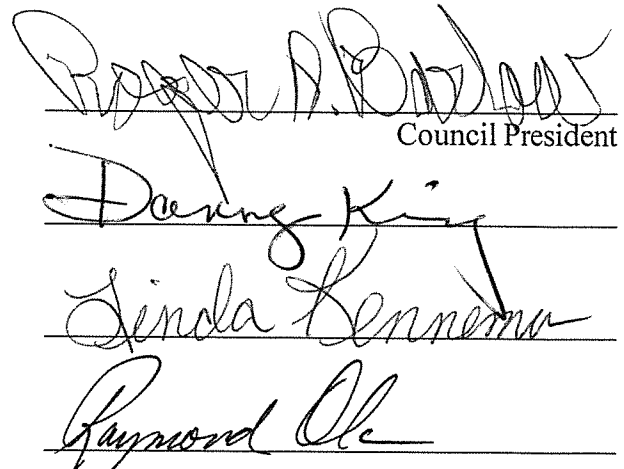 Roger A. Barlow
Council President
Danny King
Linda Kenneman
Raymond